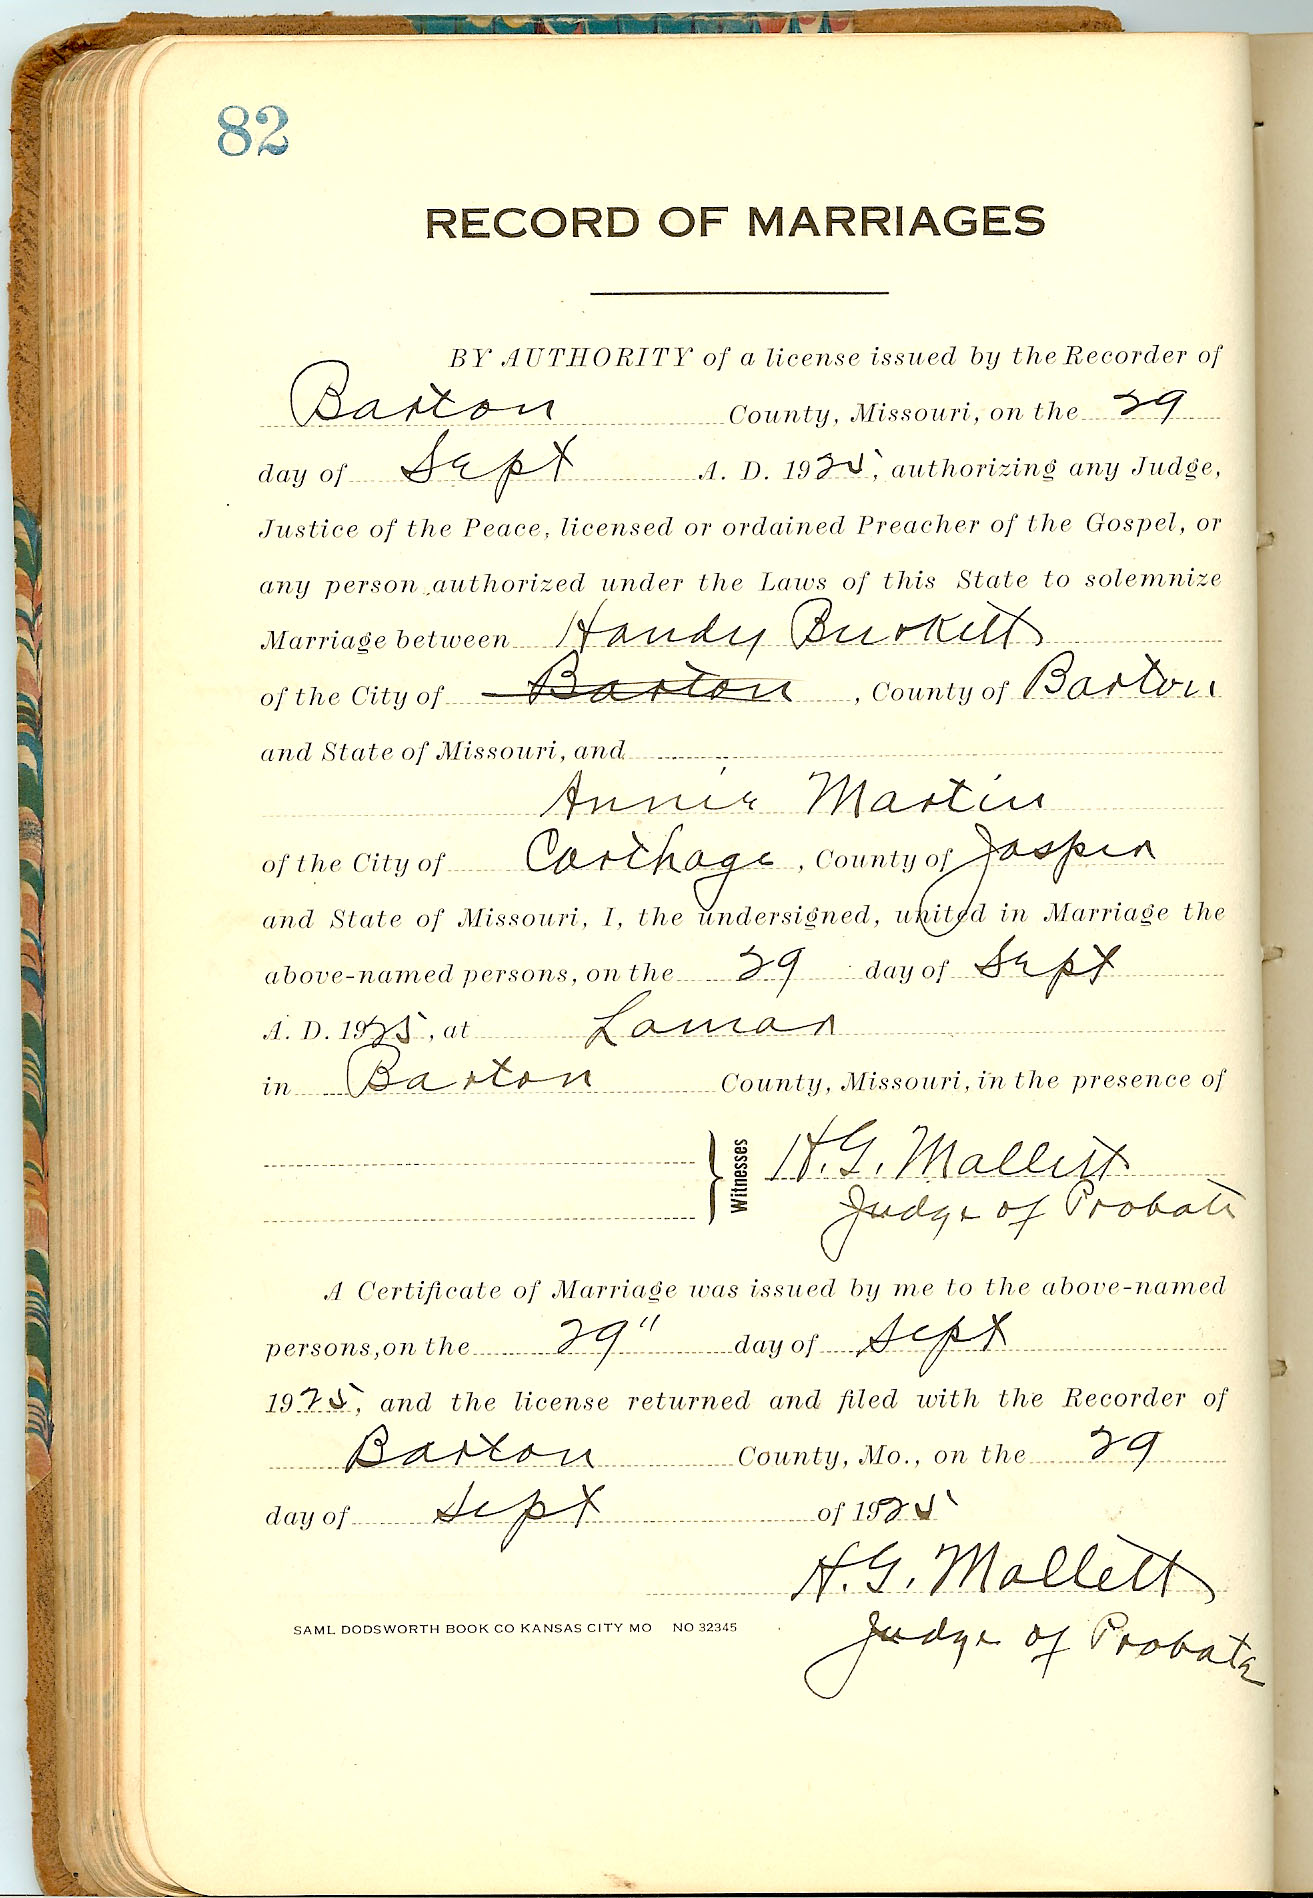 82
RECORD OF MARRIAGES
BY AUTHORITY of a license issued by the Recorder of
Barton County, Missouri, on the 29
day of Sept A. D. 1925, authorizing any Judge,
Justice of the Peace, licensed or ordained Preacher of the Gospel, or
any person authorized under the Laws of this State to solemnize
Marriage between Handy Burkett
of the City of Barton, County of Barton
and State of Missouri, and
Annie Martin
of the City of Carthage, County of Jasper
and State of Missouri, I, the undersigned, united in Marriage the
above-named persons, on the 29 day of Sept
A. D. 1925, at Lamar
in Barton County, Missouri, in the presence of
Witnesses H. G. Mallett
Judge of Probate
A Certificate of Marriage was issued by me to the above-named
persons, on the 29" day of Sept
1925, and the license returned and filed with the Recorder of
Barton County, Mo., on the 29
day of Sept of 1925
H. G. Mallett
SAML DODSWORTH BOOK CO KANSAS CITY MO NO 32345
Judge of Probate